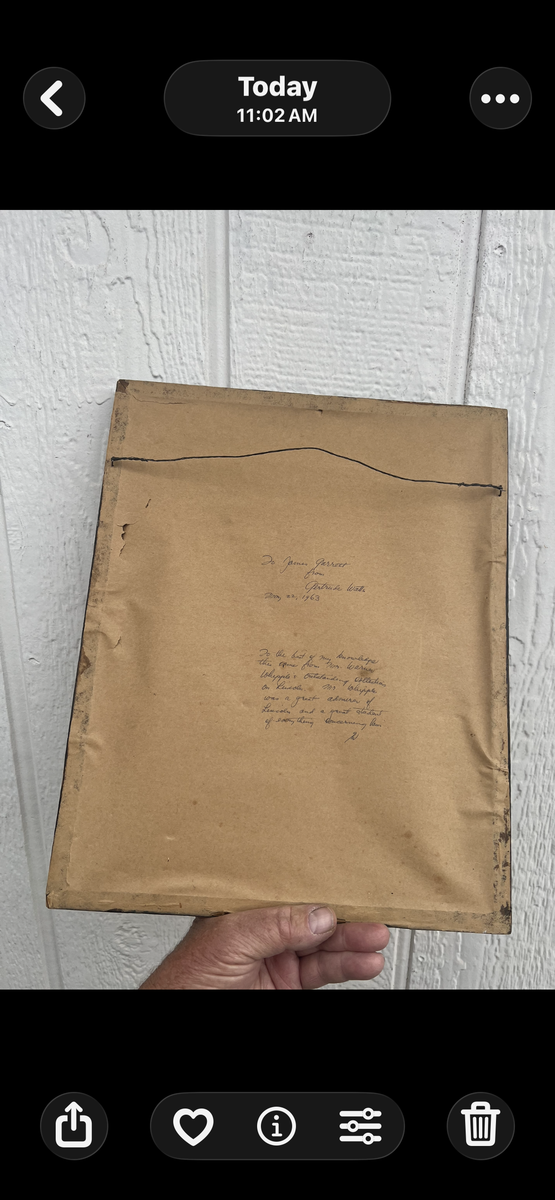 Today
11:02 AM
To James Garrett
from
Gertrude
Nov. 22, 1963
To the best of my knowledge
this came from Mr.
Whipple's Outstanding Collection
on Lincoln. Mr. Whipple
was a great admirer of
Lincoln and a great student
of everything concerning him